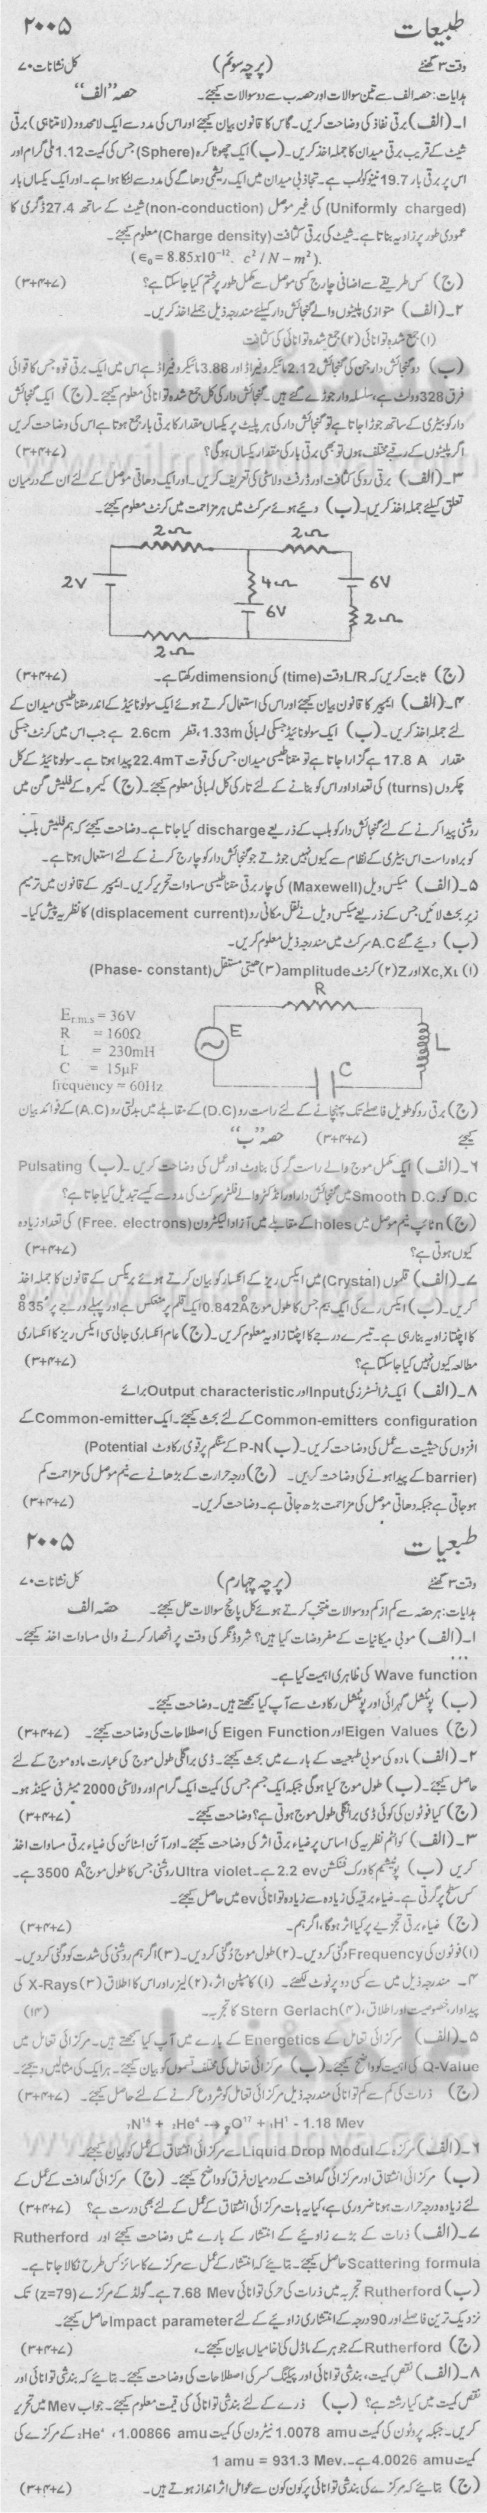 طبیعات ۲۰۰۵
وقت ۳ گھنٹے (پرچہ سوئم) کل نشانات ۷۰
ہدایات: حصہ الف سے تین سوالات اور حصہ ب سے دو سوالات کیجئے۔ حصہ "الف"
۱۔ (الف) برقی نفاذ کی وضاحت کریں۔ گاس کا قانون بیان کیجئے اور اس کی مدد سے ایک لامحدود (لامتناہی) برقی
شیٹ کے قریب برقی میدان کا جملہ اخذ کریں۔ (ب) ایک چھوٹا کرہ (Sphere) جس کی کمیت 1.12 ملی گرام اور
اس پر برقی بار 19.7 نینو کولمب ہے۔ تجاذبی میدان میں ایک ریشمی دھاگے کی مدد سے لٹکا ہوا ہے۔ اور ایک یکساں بار
(Uniformly charged) کی غیر موصل (non-conduction) شیٹ کے ساتھ 27.4 ڈگری کا
عمودی طور پر زاویہ بناتا ہے۔ شیٹ کی برقی کثافت (Charge density) معلوم کیجئے۔
(ϵ₀ = 8.85x10⁻¹². c²/N – m²).
(ج) کس طریقے سے اضافی چارج کسی موصل سے مکمل طور پر ختم کیا جا سکتا ہے؟ (۳+۴+۷)
۲۔ (الف) متوازی پلیٹوں والے گنجائش دار کیلئے مندرجہ ذیل جملے اخذ کریں۔
(۱) جمع شدہ توانائی (۲) جمع شدہ توانائی کی کثافت
(ب) دو گنجائش دار جن کی گنجائش 2.12 مائیکرو فیراڈ اور 3.88 مائیکرو فیراڈ ہے اس میں ایک برقی قوہ جس کا قوائی
فرق 328 وولٹ ہے، سلسلہ وار جوڑے گئے ہیں۔ گنجائش دار کی کل جمع شدہ توانائی معلوم کیجئے۔ (ج) ایک گنجائش
دار کو بیٹری کے ساتھ جوڑا جاتا ہے تو گنجائش دار کی ہر پلیٹ پر یکساں مقدار کا برقی بار جمع ہوتا ہے اس کی وضاحت کریں
اگر پلیٹوں کے رقبے مختلف ہوں تو بھی برقی بار کی مقدار یکساں ہوگی؟ (۳+۴+۷)
۳۔ (الف) برقی رو کی کثافت اور ڈرفٹ ولاسٹی کی تعریف کریں۔ اور ایک دھاتی موصل کے لئے ان کے درمیان
تعلق کیلئے جملہ اخذ کریں۔ (ب) دیئے ہوئے سرکٹ میں ہر مزاحمت میں کرنٹ معلوم کیجئے۔
2Ω 2Ω
2V 4Ω 6V
6V 2Ω
2Ω
(ج) ثابت کریں کہ L/R وقت (time) کی dimension رکھتا ہے۔ (۳+۴+۷)
۴۔ (الف) ایمپیر کا قانون بیان کیجئے اور اس کی استعمال کرتے ہوئے ایک سولونائیڈ کے اندر مقناطیسی میدان کے
لئے جملہ اخذ کریں۔ (ب) ایک سولونائیڈ جسکی لمبائی 1.33m، قطر 2.6cm ہے جب اس میں کرنٹ جسکی
مقدار 17.8 A ہے گزارا جاتا ہے تو مقناطیسی میدان جس کی قوت 22.4mT پیدا ہوتا ہے۔ سولونائیڈ کے کل
چکروں (turns) کی تعداد اور اس کو بنانے کے لئے تار کی کل لمبائی معلوم کیجئے۔ (ج) کیمرہ کے فلیش گن میں
روشنی پیدا کرنے کے لئے گنجائش دار کو بلب کے ذریعے discharge کیا جاتا ہے۔ وضاحت کیجئے کہ ہم فلیش بلب
کو براہ راست اس بیٹری کے نظام سے کیوں نہیں جوڑتے جو گنجائش دار کو چارج کرنے کے لئے استعمال ہوتا ہے۔
۵۔ (الف) میکس ویل (Maxewell) کی چار برقی مقناطیسی مساوات تحریر کریں۔ ایمپیر کے قانون میں ترمیم
زیر بحث لائیں جس کے ذریعے میکس ویل نے نقل مکانی رو (displacement current) کا نظریہ پیش کیا۔
(ب) دیئے گئے A.C سرکٹ میں مندرجہ ذیل معلوم کریں۔
(۱) Xc, XL اور Z (۲) کرنٹ amplitude (۳) ہیئتی مستقل (Phase- constant)
R
E r.m.s = 36V
R = 160Ω
L = 230mH
C = 15μF
frequency = 60Hz
E L
C
(ج) برقی رو کو طویل فاصلے تک پہنچانے کے لئے راست رو (D.C) کے مقابلے میں بدلتی رو (A.C) کے فوائد بیان
کیجئے (۳+۴+۷) حصہ "ب"
۶۔ (الف) ایک مکمل موج والے راست گر کی بناوٹ اور عمل کی وضاحت کریں۔ (ب) Pulsating
D.C کو Smooth D.C. میں گنجائش دار اور انڈکٹر والے فلٹر سرکٹ کی مدد سے کیسے تبدیل کیا جاتا ہے؟
(ج) n ٹائپ نیم موصل میں holes کے مقابلے میں آزاد الیکٹرون (Free. electrons) کی تعداد زیادہ
کیوں ہوتی ہے؟ (۳+۴+۷)
۷۔ (الف) قلموں (Crystal) میں ایکس ریز کے انکسار کو بیان کرتے ہوئے بریگس کے قانون کا جملہ اخذ
کریں۔ (ب) ایکس رے کی ایک بیم جس کا طول موج 0.842Å ایک قلم پر منعکس ہے اور پہلے درجے پر 8°35′
کا اچٹتا زاویہ بنا رہی ہے۔ تیسرے درجے کا اچٹتا زاویہ معلوم کریں۔ (ج) عام انکساری جالی سی ایکس ریز کا انکساری
مطالعہ کیوں نہیں کیا جا سکتا ہے؟ (۳+۴+۷)
۸۔ (الف) ایک ٹرانسسٹرز کی Input اور Output characteristic برائے
Common-emitters configuration کے لئے بحث کیجئے۔ ایک Common-emitter کے
افزوں کی حیثیت سے عمل کی وضاحت کریں۔ (ب) P-N کے سنگم پر قوی رکاوٹ (Potential
barrier) کے پیدا ہونے کی وضاحت کریں۔ (ج) درجہ حرارت کے بڑھانے سے نیم موصل کی مزاحمت کم
ہو جاتی ہے جبکہ دھاتی موصل کی مزاحمت بڑھ جاتی ہے۔ وضاحت کریں۔ (۳+۴+۷)
طبعیات ۲۰۰۵
وقت ۳ گھنٹے (پرچہ چہارم) کل نشانات ۷۰
ہدایات: ہر حصہ سے کم از کم دو سوالات منتخب کرتے ہوئے کل پانچ سوالات حل کیجئے۔ حصہ الف
۱۔ (الف) موجی میکانیات کے مفروضات کیا ہیں؟ شروڈنگر کی وقت پر انحصار کرنے والی مساوات اخذ کیجئے۔
...
Wave function کی ظاہری اہمیت کیا ہے۔
(ب) پوٹنشل گہرائی اور پوٹنشل رکاوٹ سے آپ کیا سمجھتے ہیں۔ وضاحت کیجئے۔
(ج) Eigen Values اور Eigen Function کی اصطلاحات کی وضاحت کیجئے۔ (۳+۴+۷)
۲۔ (الف) مادہ کی موجی طبیعت کے بارے میں بحث کیجئے۔ ڈی براگلی طول موج کی عبارت مادہ موج کے لئے
حاصل کیجئے۔ (ب) طول موج کیا ہوگی جبکہ ایک جسم جس کی کمیت ایک گرام اور ولاسٹی 2000 میٹر فی سیکنڈ ہو۔
(ج) کیا فوٹون کی کوئی ڈی براگلی طول موج ہوتی ہے؟ وضاحت کیجئے۔ (۳+۴+۷)
۳۔ (الف) کوانٹم نظریہ کی اساس پر ضیاء برقی اثر کی وضاحت کیجئے۔ اور آئن اسٹائن کی ضیاء برقی مساوات اخذ
کریں (ب) پوٹیشیم کا ورک فنکشن 2.2 ev ہے۔ Ultra violet روشنی جس کا طول موج 3500 A° ہے۔
کس سطح پر گرتی ہے۔ ضیاء برقیہ کی زیادہ سے زیادہ توانائی ev میں حاصل کیجئے۔
(ج) ضیاء برقی تجربے پر کیا اثر ہوگا، اگر ہم۔ (۳+۴+۷)
(۱) فوٹون کی Frequency دگنی کر دیں۔ (۲) طول موج دگنی کر دیں۔ (۳) اگر ہم روشنی کی شدت کو دگنی کر دیں۔
۴۔ مندرجہ ذیل میں سے کسی دو پر نوٹ لکھئے۔ (۱) کامپٹن اثر، (۲) لیزر اور اس کا اطلاق (۳) X-Rays کی
پیداوار، خصوصیت اور اطلاق، (۴) Stern Gerlach کا تجربہ۔ (۱۴)
۵۔ (الف) مرکزائی تعامل کے Energetics کے بارے میں آپ کیا سمجھتے ہیں۔ مرکزائی تعامل میں
Q-Value کی اہمیت کو واضح کیجئے۔ (ب) مرکزائی تعامل کی مختلف قسموں کو بیان کیجئے۔ ہر ایک کی مثالیں دیجئے۔
(ج) ذرات کی کم سے کم توانائی مندرجہ ذیل مرکزائی تعامل کو شروع کرنے کے لئے حاصل کیجئے۔ (۳+۴+۷)
₇N¹⁴ + ₂He⁴ → ₈O¹⁷ + ₁H¹ - 1.18 Mev
۶۔ (الف) مرکزہ کے Liquid Drop Modul سے مرکزائی انشقاق کے عمل کو بیان کیجئے۔
(ب) مرکزائی انشقاق اور مرکزائی گدافت کے درمیان فرق کو واضح کیجئے۔ (ج) مرکزائی گدافت کے عمل کے
لئے زیادہ درجہ حرارت ہونا ضروری ہے، کیا یہ بات مرکزائی انشقاق کے عمل کے لئے بھی درست ہے؟ (۳+۴+۷)
۷۔ (الف) ذرات کے بڑے زاویئے کے انتشار کے بارے میں وضاحت کیجئے اور Rutherford
Scattering formula حاصل کیجئے۔ بتائیے کہ انتشار کے عمل سے مرکزے کا سائز کس طرح نکالا جاتا ہے۔
(ب) Rutherford تجربہ میں ذرات کی حرکی توانائی 7.68 Mev ہے۔ گولڈ کے مرکزے (z=79) تک
نزدیک ترین فاصلے اور 90 درجہ کے انتشاری زاویئے کے لئے Impact parameter حاصل کیجئے۔
(ج) Rutherford کے جوہر کے ماڈل کی خامیاں بیان کیجئے۔ (۳+۴+۷)
۸۔ (الف) نقص کمیت، بندشی توانائی اور پیکنگ کسر کی اصطلاحات کی وضاحت کیجئے۔ بتائیے کہ بندشی توانائی اور
نقص کمیت میں کیا رشتہ ہے؟ (ب) ذرے کے لئے بندشی توانائی کی قیمت معلوم کیجئے۔ جواب Mev میں تحریر
کریں۔ جبکہ پروٹون کی کمیت 1.0078 amu نیٹرون کی کمیت 1.00866 amu، ₂He⁴ کے مرکزے کی
کمیت 4.0026 amu ہے۔ 1 amu = 931.3 Mev.
(ج) بتائیے کہ مرکزے کی بندشی توانائی پر کون کون سے عوامل اثر انداز ہوتے ہیں۔ (۳+۴+۷)